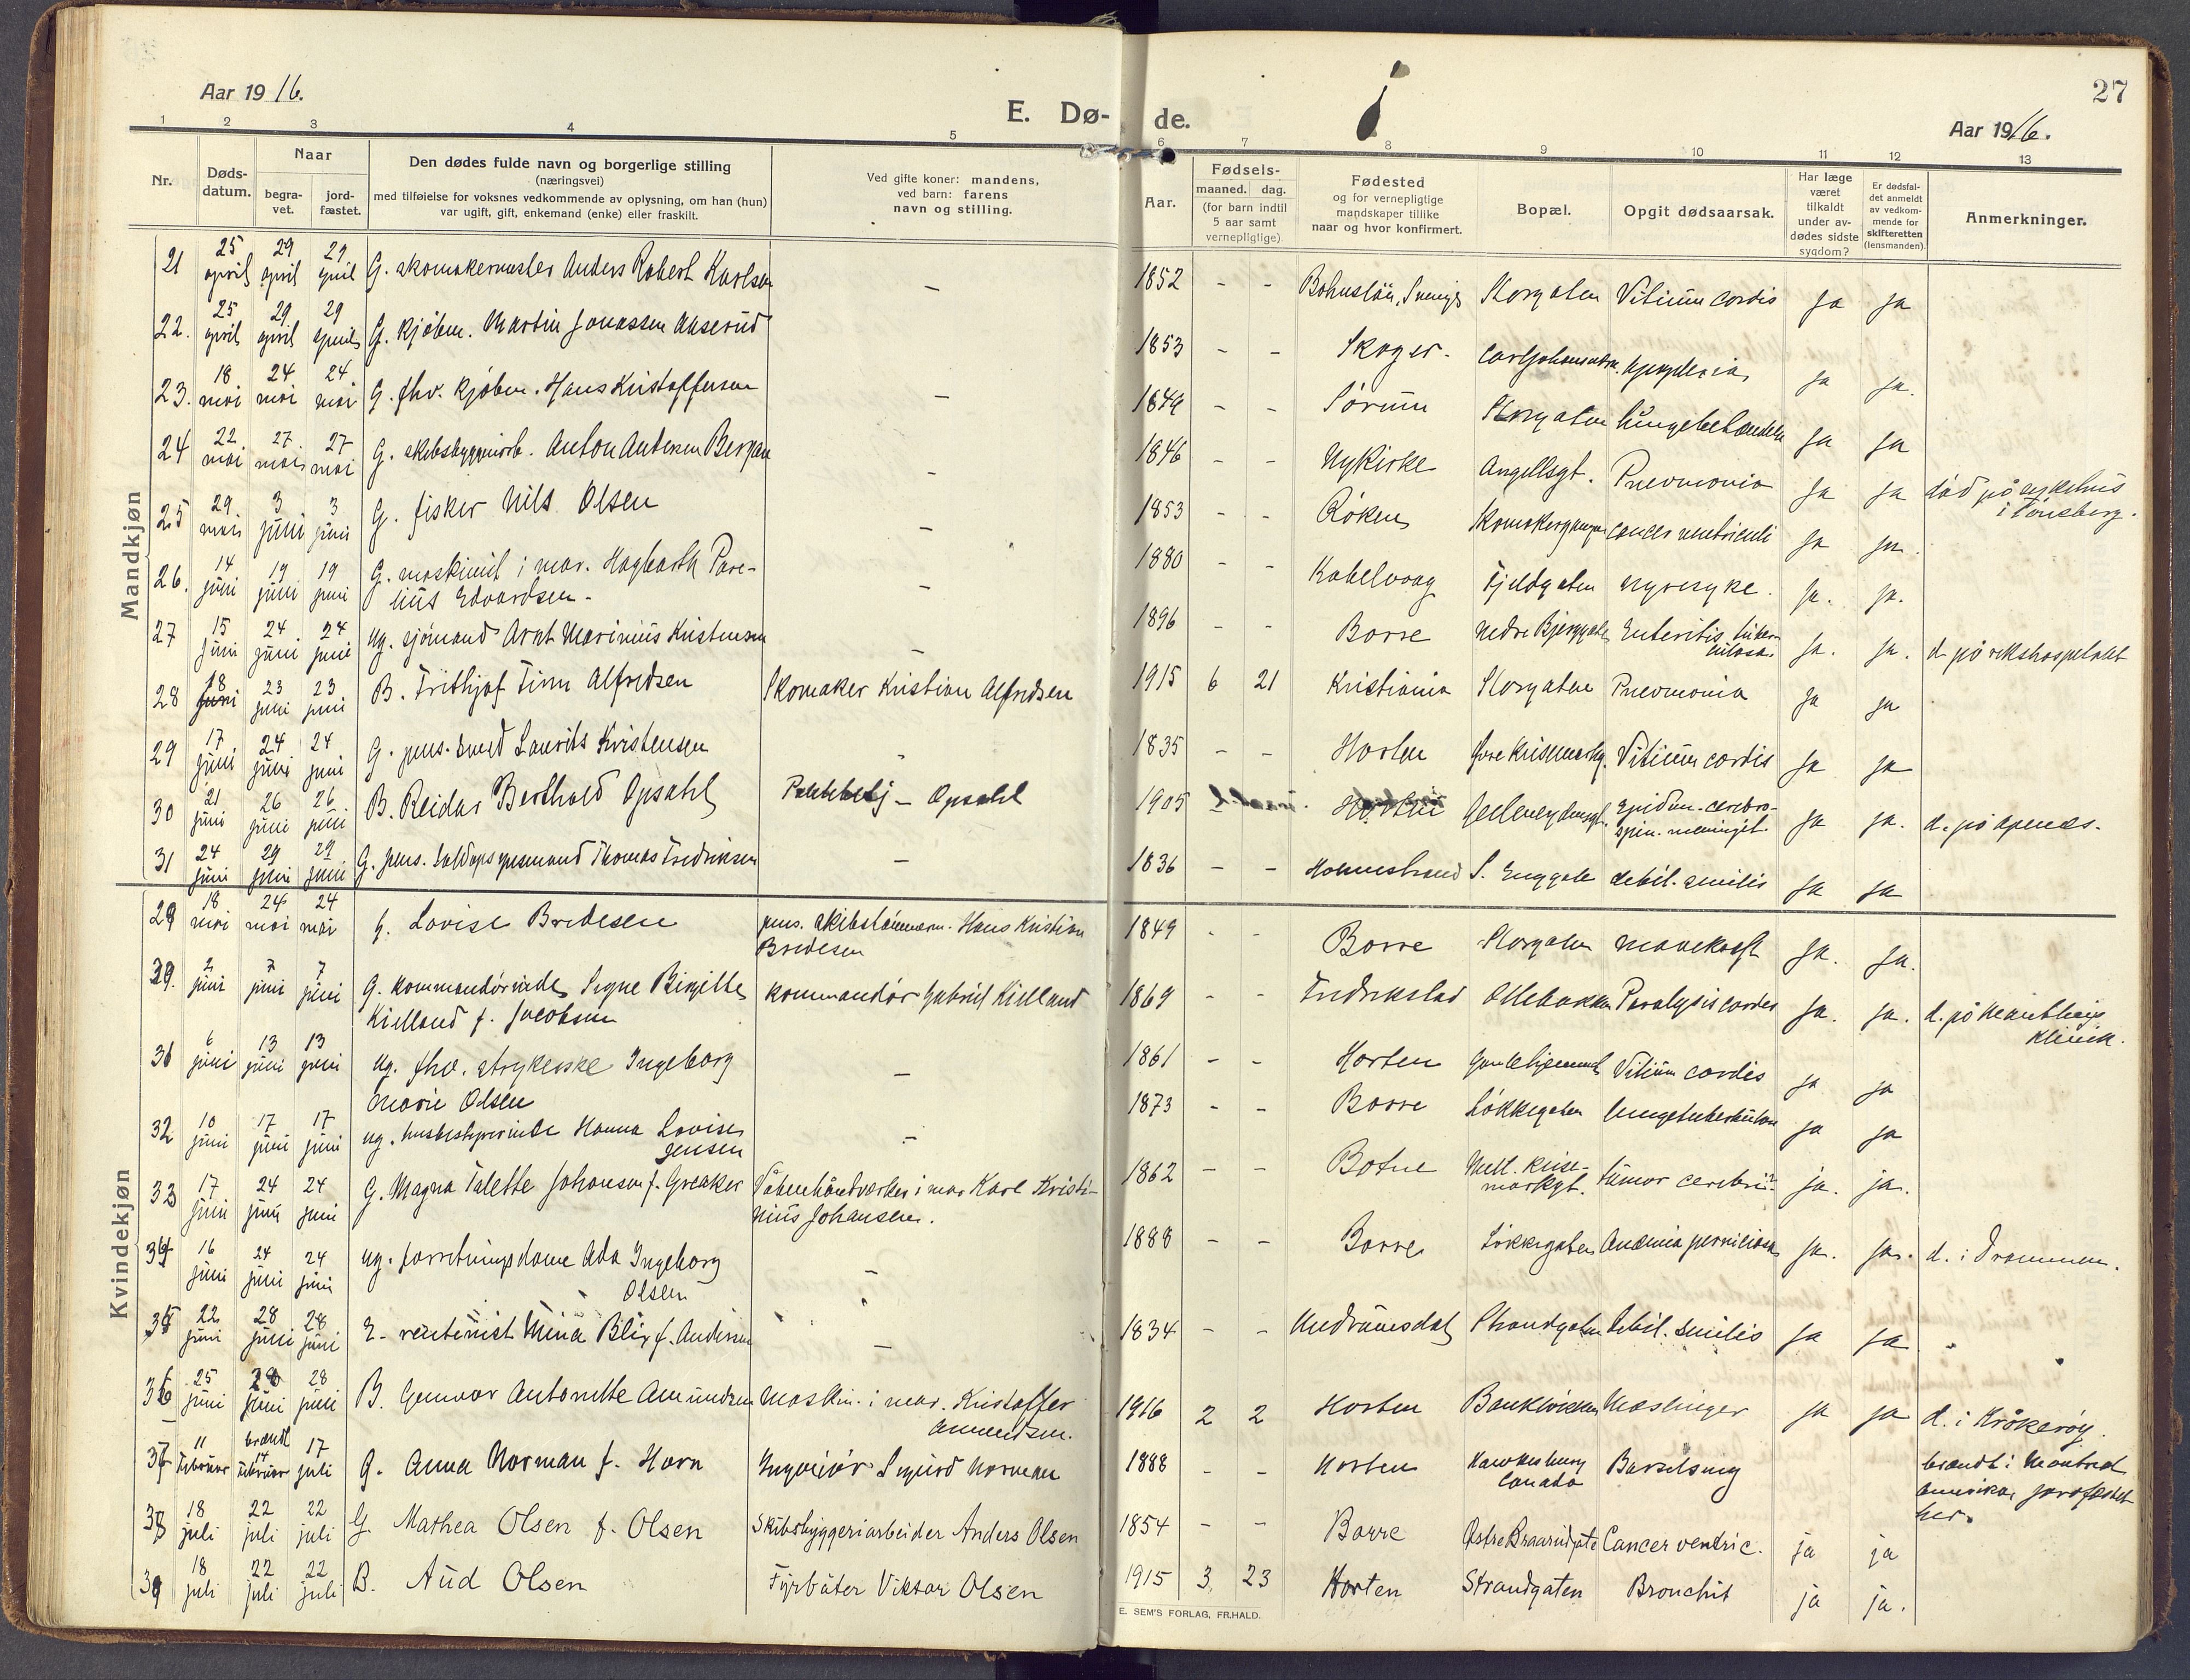 27
Aar 1916.
E. Dø- de.
Aar 1916.
1 2 3 4 5 6 7 8 9 10 11 12 13
Nr.
Døds-
datum.
Naar
begra-
vet.
jord-
fæstet.
Den dødes fulde navn og borgerlige stilling
(næringsvei)
med tilføielse for voksnes vedkommende av oplysning, om han (hun)
var ugift, gift, enkemand (enke) eller fraskilt.
Ved gifte koner: mandens,
ved barn: farens
navn og stilling.
Aar.
Fødsels-
maaned. dag.
(for barn indtil
5 aar samt
vernepligtige).
Fødested
og for vernepligtige
mandskaper tillike
naar og hvor konfirmert.
Bopæl.
Opgit dødsaarsak.
Har læge
været
tilkaldt
under av-
dødes sidste
sygdom?
Er dødsfal-
det anmeldt
av vedkom-
mende for
skifteretten
(lensmanden).
Anmerkninger.
Mandkjøn
21 25 april 29 april 29 april G. skomakermester Anders Robert Karlsen — 1852 - - Bohuslän, Sverige Storgaten Vitium cordis ja ja
22. 25 april 29 april 29 april G. kjøbm. Martin Jonassen Aaserud 1853 - - Skoger. Carl Johansgt. Apoplexia ja ja.
23. 18 mai 24 mai 24 mai G. fhv. kjøbm. Hans Kristoffersen — 1849 - - Sørum Storgaten ja ja
24 22 mai 27 mai 27 mai G. skibsbyggeriarb. Anton Andersen Bergan — 1846 - - Nykirke Angellsgt. Pneumonia ja ja død på sykehus
i Tønsberg.
25 29 mai 3 juni 3 juni G. fisker Nils Olsen — 1853 - - Røken cancer ventriculi ja ja.
26. 14 juni 19 juni 19 juni G. maskinist i mar. Hagbarth Pare-
lius Edvardsen. — 1880 - - Kabelvaag Fjeldgaten nyresyke. ja. ja.
27 15 juni 24 juni 24 juni ug. sjømand Arnt Marinius Kristensen — 1896 - - Borre Nedre Bjerggate Enteritis tuber-
culosa. ja. ja. d. på rikshospitalet
28 18 juni 23 juni 23 juni B. Frithjof Finn Alfredsen Skomaker Kristian Alfredsen 1915 6 21 Kristiania Storgaten Pneumonia ja ja
29 17 juni 24 juni 24 juni G. pens. smed Laurits Kristensen - 1835 - - Horten Vitium cordis ja ja
30 21 juni 26 juni 26 juni B. Reidar Berthold Opsahl — Opsahl 1905 Horten Epidem. cerebro-
spin. meningit. ja ja. d. på
31 24 juni 29 juni 29 juni G. pens. Thomas Fredriksen — 1836 - - Holmestrand S. Enggate debil. senilis ja ja
Kvindekjøn
29 18 mai 24 mai 24 mai G. Lovise Bredesen pens. skibstømmerm. Hans Kristian
Bredesen 1849 - - Borre Storgaten mavekræft ja. ja.
30. 2 juni 7 juni 7 juni G. kommandørinde Signe Birgitte
Kielland f. Jacobsen kommandør Gabriel Kielland 1869 - - Fredrikstad Ollebakken Paralysis cordis ja. ja. d. på
klinik.
31 6 juni 13 juni 13 juni ug. fhv. strykerske Ingeborg
Marie Olsen — 1861 - - Horten Gamlehjemmet Vitium cordis ja ja
32 10 juni 17 juni 17 juni ug. husbestyrerinde Hanna Lovise
Jensen — 1873 - - Borre Løkkegaten lungetuberkulose ja ja
33 17 juni 24 juni 24 juni G. Magna Talette Johansen f. Greaker Våbenhåndverker i mar. Karl Kristi-
nius Johansen. 1862 - - Botne tumor cerebri? ja. ja.
34 16 juni 24 juni 24 juni ug. forretningsdame Ada Ingeborg
Olsen — 1888 - - Borre Løkkegaten Anæmia perniciosa ja. ja. d. i Drammen.
35 22 juni 28 juni 28 juni E. rentenist Mina Blix f. Andersen — 1834 - - Strandgaten debil. senilis ja ja
36 25 juni 28 juni 28 juni B. Gunvor Antonette Amundsen Maskin. i mar. Kristoffer
Amundsen. 1916 2 2 Horten Bankløkken Mæslinger ja ja d. i Kråkerøy.
37 11 februar brændt 14 februar 17 juli G. Anna Norman f. Horn Ingeniør Sigurd Norman 1888 - - Horten Hawkesbury
Canada Barselseng brændt i Montreal
Amerika, jordfæstet
her.
38 18 juli 22 juli 22 juli G. Mathea Olsen f. Olsen Skibsbyggeriarbeider Anders Olsen 1854 - - Borre Østre Braarudgate Cancer ventric. ja ja
39 18 juli 22 juli 22 juli B. Aud Olsen Fyrbøter Viktor Olsen 1915 3. 23 Horten Strandgaten Bronchit ja ja.
E. SEM'S FORLAG, FR.HALD.